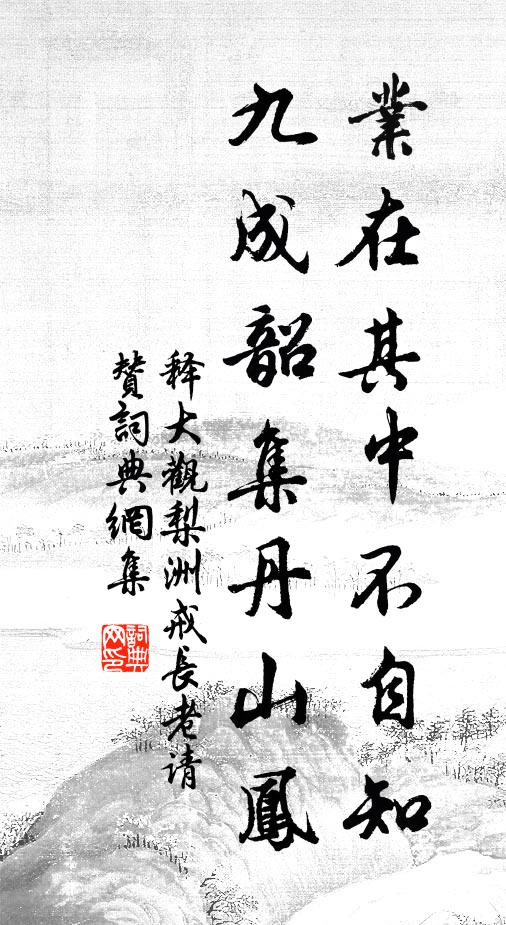 業在其中不自知
九成韶集丹山鳳
释大觀梨洲戒長老请
贊詞典網集
詞典
网印